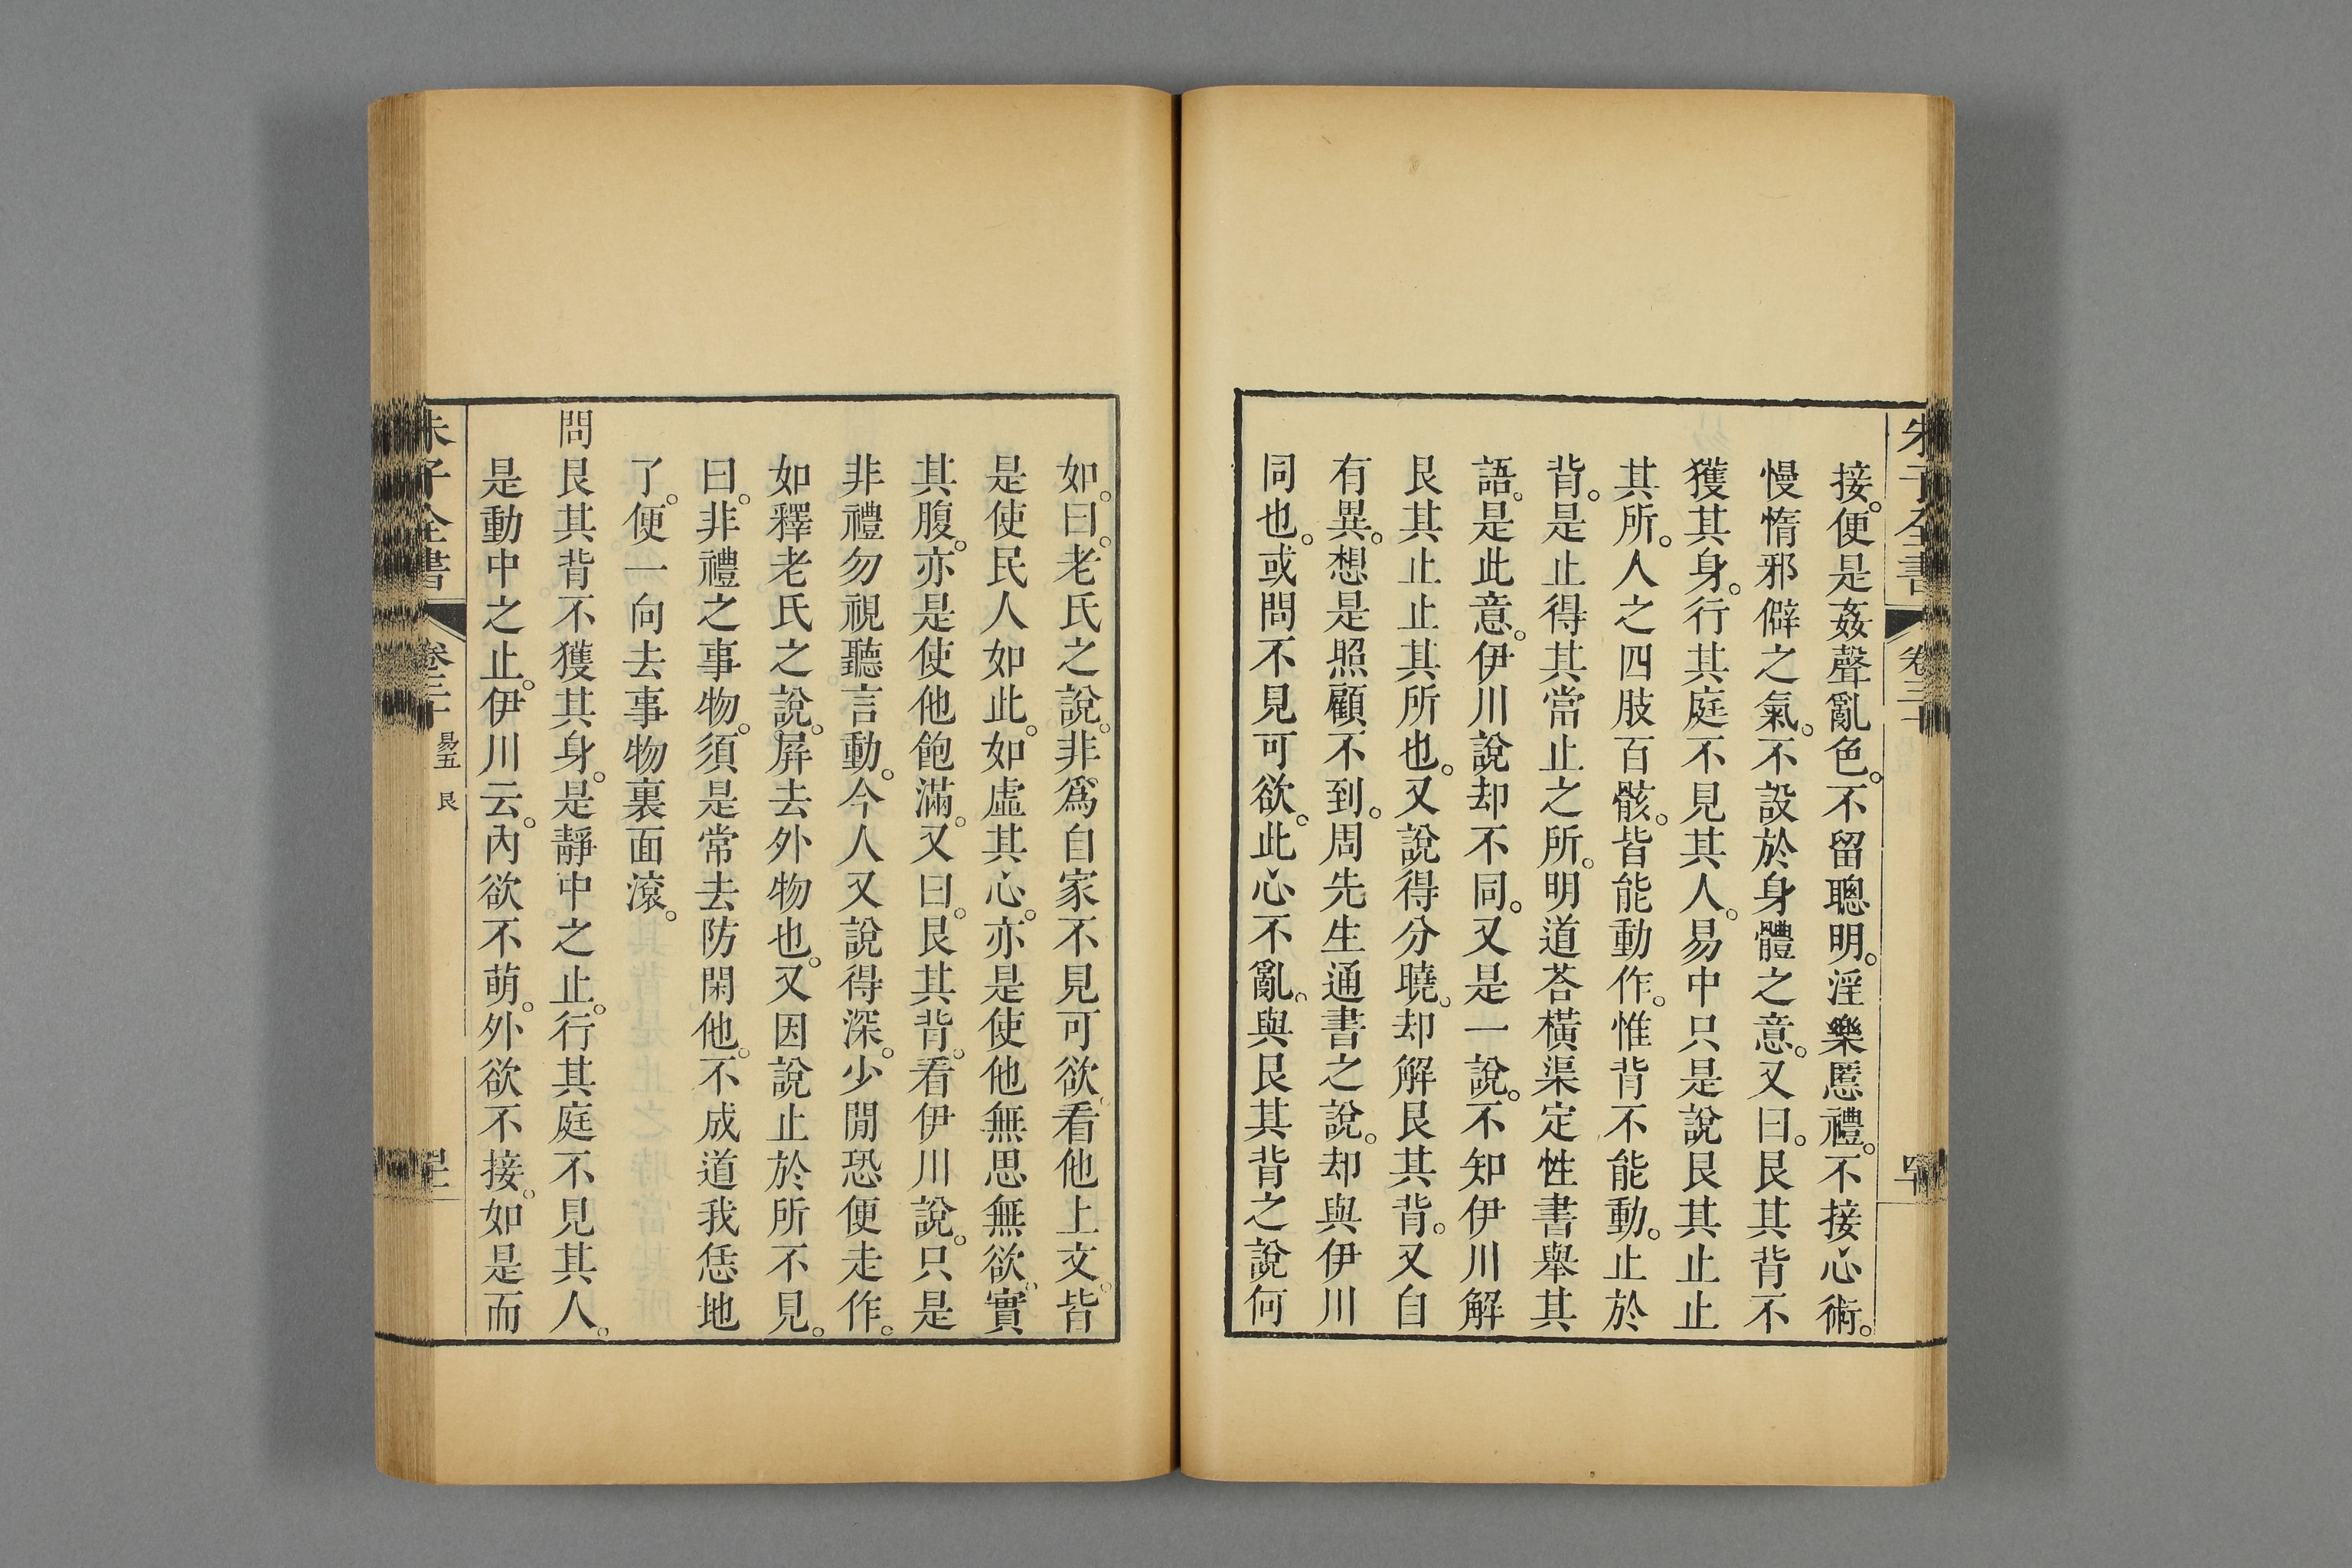 朱子全書 卷三十
接。便是姦聲亂色。不留聰明。淫樂慝禮。不接心術。
慢惰邪僻之氣。不設於身體之意。又曰。艮其背不
獲其身。行其庭不見其人。易中只是說艮其止止
其所。人之四肢百骸。皆能動作。惟背不能動。止於
背。是止得其當止之所。明道荅橫渠定性書舉其
語。是此意。伊川說却不同。又是一說。不知伊川解
艮其止止其所也。又說得分曉。却解艮其背。又自
有異。想是照顧不到。周先生通書之說。却與伊川
同也。或問不見可欲。此心不亂。與艮其背之說何
如。曰。老氏之說。非爲自家不見可欲。看他上文。皆
是使民人如此。如虛其心。亦是使他無思無欲。實
其腹。亦是使他飽滿。又曰。艮其背。看伊川說。只是
非禮勿視聽言動。今人又說得深。少閒恐便走作。
如釋老氏之說。屏去外物也。又因說止於所不見。
曰。非禮之事物。須是常去防閑他。不成道我恁地
了。便一向去事物裏面滾。
問艮其背不獲其身。是靜中之止。行其庭不見其人。
是動中之止。伊川云。內欲不萌。外欲不接。如是而
朱子全書 卷三十 易五 艮